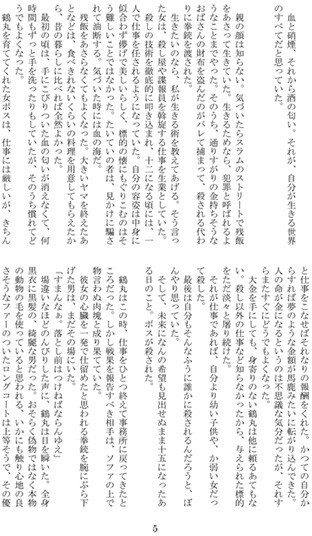 血と硝煙、それから酒の匂い、それが、自分が生きる世界
のすべてだと思っていた。
親の顔は知らない。気づいたらスラムのストリートで残飯
をあさって生きていた。生きるためなら、犯罪と呼ばれるよ
うなことまでやった。そのうち、通りすがりの金持ちそうな
おばさんの財布を盗んだのがバレて捕まって、殺される代わ
りに拳銃を渡された。
生きたいのなら、私が生きる術を教えてあげる。そう言っ
た女は、殺し屋や諜報員を斡旋する仕事を生業としていた。
殺しの技術を徹底的に叩き込まれ、十二になる頃には、一
人で仕事を任されるようになっていた。自分の容姿は中身に
似合わず儚げで美しいらしく、標的の懐にもぐりこむのはそ
う難しいことではなかった。たいていの者は、見かけに騙さ
れて油断する。気づいた時には血の海だ。
残飯をあさらなくてもよくなった。大きいヤマを終えたあ
となどは、食べきれないくらいの料理を用意してもらえたか
ら、昔の暮らしに比べれば全然よかった。
最初の頃は、手にこびりついた血の匂いが消えなくて、何
時間もずっと手を洗ったりもしていたが、そのうち慣れてど
うでもよくなった。
鶴丸を育ててくれた女ボスは、仕事には厳しいが、きちん
と仕事をこなせばそれなりの報酬をくれた。かつての自分か
らすれば夢のような金額が馬鹿みたいに転がり込んできた。
人の命が金になるというのは不思議な気分だったが、それす
らもまたすぐにどうでもよくなった。
大金を手にしても、身寄りのない鶴丸は他に頼るあてもな
い。殺し以外の仕事など知らなかったから、与えられた標的
をただ淡々と屠り続けた。
それが仕事であれば、自分より幼い子供や、か弱い女だっ
て殺した。
最後は自分もそんなふうに誰かに殺されるんだろうと、ぼ
んやり思っていた。
そして、未来になんの希望も見出せぬまま十五になったあ
る日のこと。ボスが殺された。
鶴丸はこの時、仕事をひとつ終えて事務所に戻ってきたと
ころだった。しかし戦果を報告すべき相手は、ソファの上で
物言わぬ肉塊と成り果てていた。
彼女の心臓を一発で仕留めたと思われる拳銃を腕にぶら下
げた男は、まだその場にいた。
「すまんなぁ。落とし前はつけねばならんゆえ」
場違いなほどのんびりした声に、鶴丸は目を瞬いた。全身
黒衣に黒髪の、綺麗な男だった。おそらく偽物ではなく本物
の動物の毛を使っていると思われる、いかにも触り心地の良
さそうなファーのついたロングコートは上等そうで、その優
5